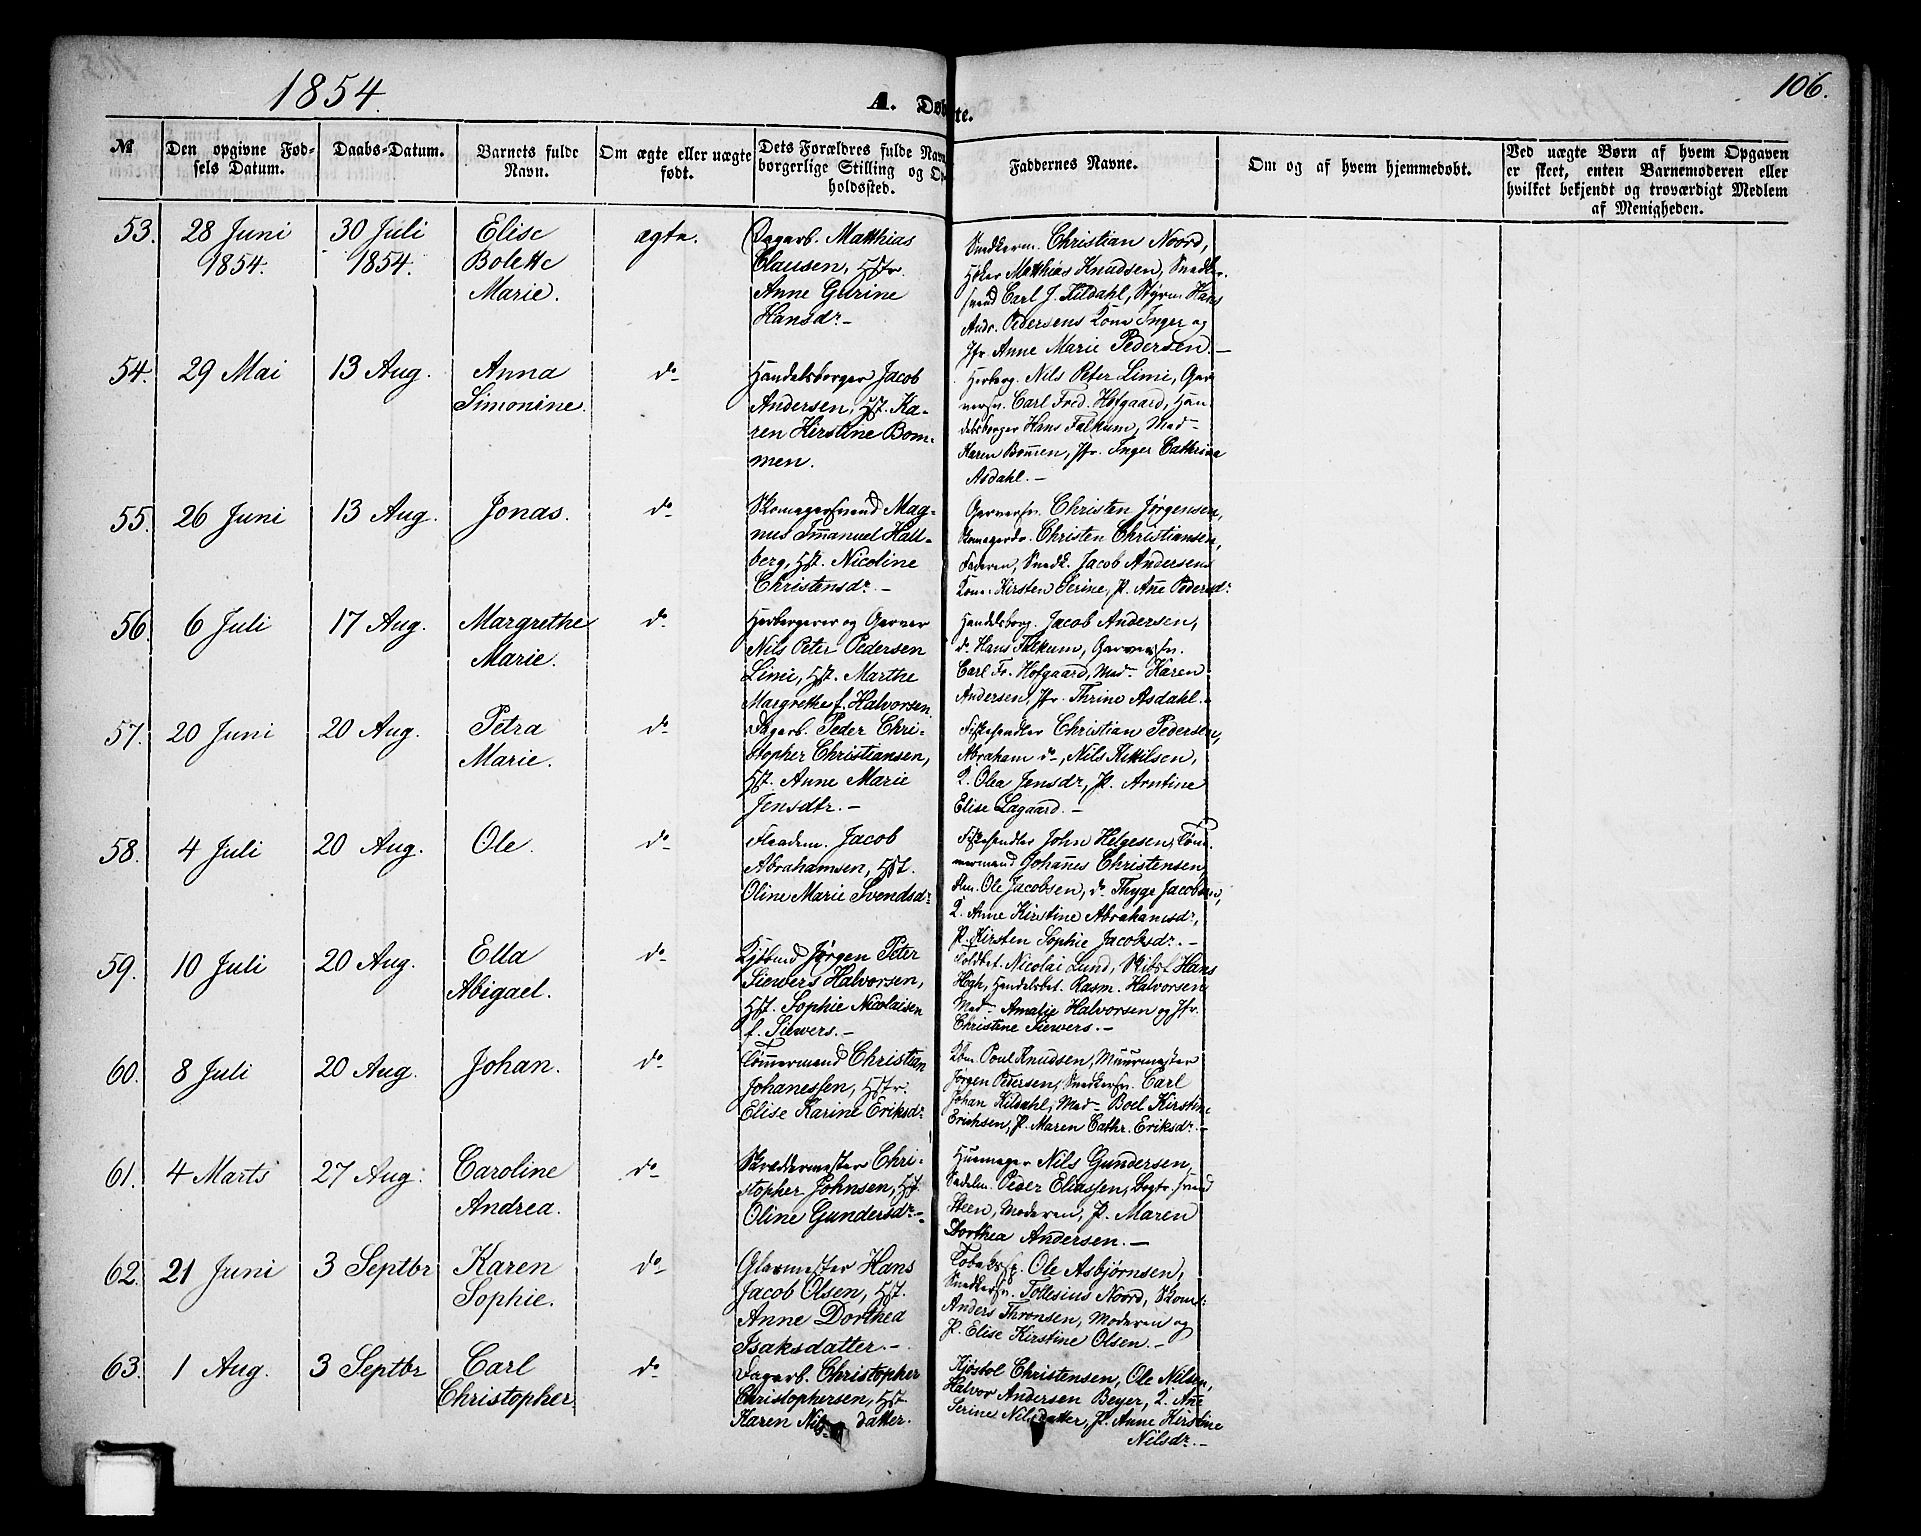 1854.
A. Døbte.
106.
№
Den opgivne Fødsels Datum.
Daabs-Datum.
Barnets fulde Navn.
Om ægte eller uægte født.
Dets Forældres fulde Navn borgerlige Stilling og Opholdssted.
Faddernes Navne.
Om og af hvem hjemmedøbt.
Ved uægte Børn af hvem Opgaven er skeet, enten Barnemoderen eller hvilket bekjendt og troværdigt Medlem af Menigheden.
53.
28 Juni
1854.
30 Juli
1854.
Elise
Bolette
Marie.
ægte.
Dagarb. Matthias
Clausen, Hstr.
Anne Gurine
Hansdr.-
Snedkerm. Christian Noord,
Høker Matthias Knudsen, Snedker-
svend Carl J. Kildahl, Styrm. Hans
Andr. Pedersens Kone Inger og
Jfr. Anne Marie Pedersen.-
54.
29 Mai
13 Aug.
Anna
Simonine.
do
Handelsborger Jacob
Andersen, Hst. Ka-
ren Kirstine Bom-
men.
Herberg. Nils Peter Limi, Gar-
versv. Carl Fred. Hofgaard, Han-
delsborger Hans Falkum, Mad-
Karen Bom̄en, Jfr. Inger Cathrine
Asdahl.-
55.
26 Juni
13 Aug.
Jonas.
do
Skomagersvend Mag-
nus Im̄anuel Hall-
berg, Hst. Nicoline
Christensdr.-
Garversv. Christen Jørgensen,
Skomagerdr. Christen Christiansen,
Faderen, Snedk. Jacob Andersens
Kone Kirsten Serine, P. An̄e Pedersdr.
56.
6 Juli
17 Aug.
Margrethe
Marie.
do
Herbergerer og Garver
Nils Peter Pedersen
Limi, Hst. Marthe
Margrethe f. Halvorsen.
Handelsborg. Jacob Andersen,
do Hans Falkum, Garversv.
Carl Fr. Hofgaard, Mad- Karen
Andersen, Jfr. Thrine Asdahl.-
57.
20 Juni
20 Aug.
Petra
Marie.
do
Dagarb. Peder Chri-
stopher Christiansen,
Hst. Anne Marie
Jensdtr.-
Fiskehandler Christian Pedersen,
Abraham do, Nils Kittilsen,
K. Olea Jensdr, P. Arntine
Elise Lagaard.-
58.
4 Juli
20 Aug.
Ole.
do
Jacob
Abrahamsen, Hst.
Oline Marie Svendsdr.
Fiskehandler John Helgesen, Tøm-
mermand Johan̄es Christensen,
Ole Jacobsen, do Thyge Jacobsen,
K. Anne Kirstine Abrahamsdr,
P. Kirsten Sophie Jacobsdr.-
59.
10 Juli
20 Aug.
Ella
Abigael.
do
Kjøbmd Jørgen Peter
Siewers Halvorsen,
Hst. Sophie Nicolaisen
f. Siewers.-
Toldbet. Nicolai Lund, Skibsf. Hans
Høgh, Handelsbet. Rasm. Halvorsen
Mad- Amalie Halvorsen og Jfr.
Christine Siewers.-
60.
8 Juli
20 Aug.
Johan.
do
Tøm̄ermand Christian
Johanessen, Hstr.
Elise Karine Eriksdr.
Kbm. Poul Knudsen, Muurmester
Jørgen Pedersen, Snedkersv. Carl
Johan Kildahl, Mad- Boel Kirstine
Erichsen, P. Maren Cathr. Eriksdr.-
61.
4 Marts
27 Aug.
Caroline
Andrea.
do
Skræddermester Chri-
stopher Johnsen, Hst.
Oline Gundersdr.-
Huemager Nils Gundersen,
Sadelm. Peder Eliassen, Bogtr. svend
Steen, Moderen, P. Maren
Dorthea Andersen.-
62.
21 Juni
3 Septbr
Karen
Sophie.
do
Glarmester Hans
Jacob Olsen, Hst.
Anne Dorthea
Isaksdatter.-
Tobaksp. Ole Asbjørnsen,
Snedkersv. Tollesius Noord, Skom.
Anders Thronsen, Moderen og
P. Elise Kirstine Olsen.-
63.
1 Aug.
3 Septbr
Carl
Christopher
do
Dagarb. Christopher
Christophersen, Hst.
Karen Nilsdatter.
Kjøstol Christensen, Ole Nilsen,
Halvor Andersen Beyer, K. An̄e
Serine Nilsdatter, P. Anne Kirstine
Nilsdr.-